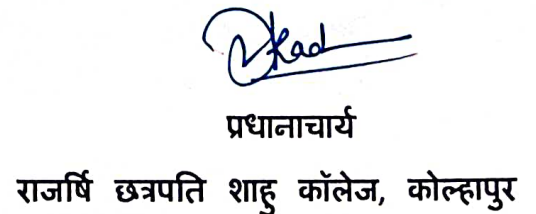 प्रधानाचार्य
राजर्षि छत्रपति शाहु कॉलेज, कोल्हापुर